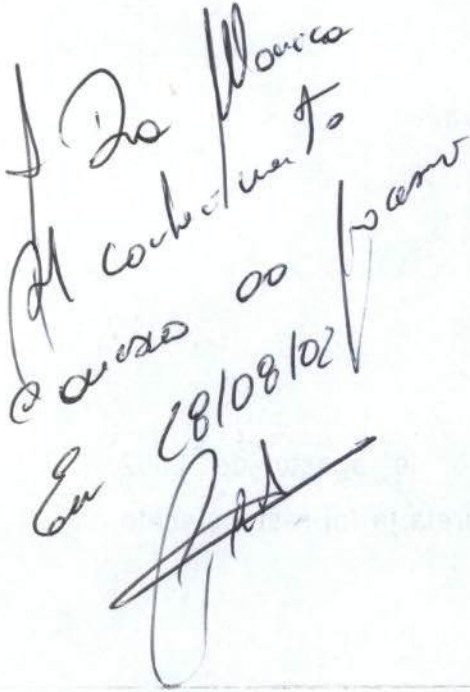 A Dra Monica
P/ conhecimento
e anexo ao processo
Em 28/08/02